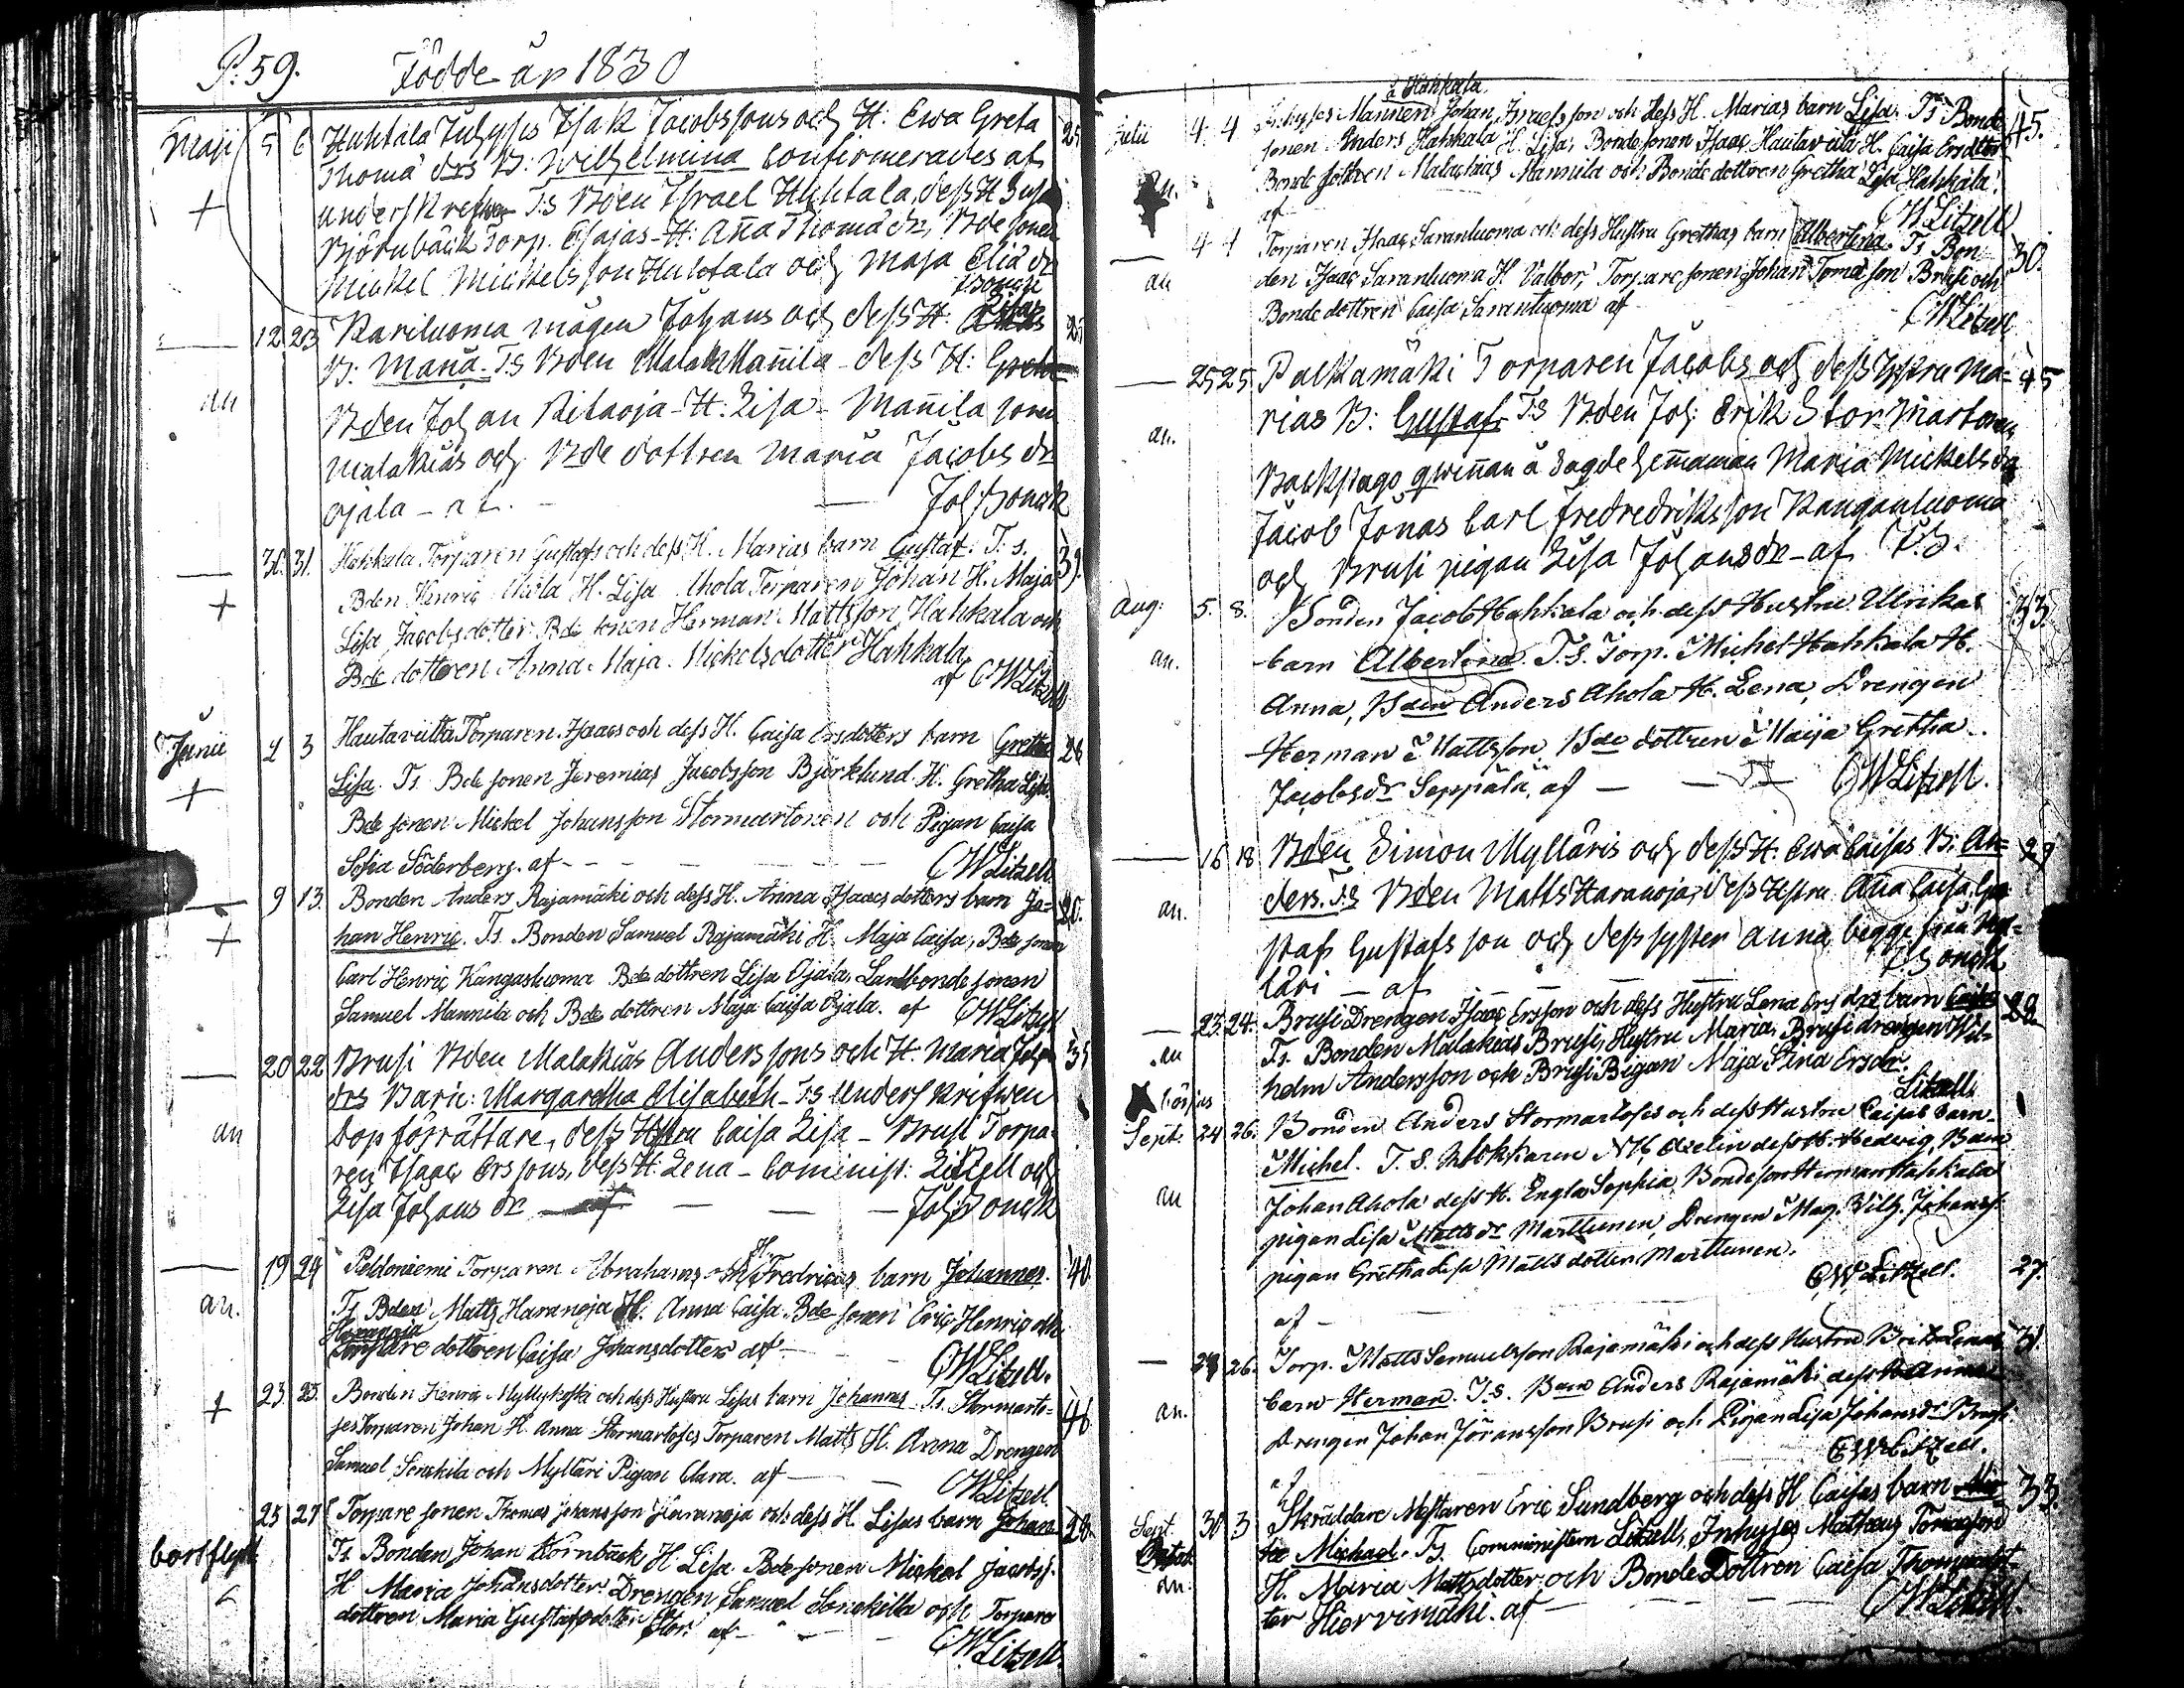 P. 59. Födde år 1830
Maji 5 6 Huhtala Inhyses Isak Jacobssons och H: Ewa Greta 25
Thomæ drs B: Wilhelmina confirmerades af
underskrefven T.S Bden Israel Huhtala, dess H Susa
Björnbäck Torp. Esajas - H: Anna Thomæ dr, Bde sonen
Mickel Mickelsson Huhtala och Maja Eliæ dr
Bonck
12 23 Kariluoma mågen Johans och dess H: Lisas 25
an B: Maria. T.S Bden Malak Mannila - dess H: Greta
Bden Johan Ritaoja - H: Lisa - Mannila sonen
Malakias och Bde dottren Maria Jacobs dr
Ojala - af. - Joh Bonck
+ 31. 31. Hahkala Torparen Gustafs och dess H. Marias barn Gustaf. T. s. 39.
Bden Henric Ahola H. Lisa Ahola Torparen Johan H. Maja
Lisa Jacobsdotter Bde sonen Herman Mattsson Hahkala och
Bde dottren Anna Maja Mickelsdotter Hahkala
af CWLitzell
Junii 2 3 Hautaviitta Torparen Isaacs och dess H. Caisa Ersdotters barn Gretha 28
+ Lisa. Ts. Bde sonen Jeremias Jacobsson Björklund H. Gretha Lisa
Bde sonen Mickel Johansson Stormartonen och Pigan Caisa
Sofia Söderberg. af - CWLitzell
9 13. Bonden Anders Rajamäki och dess H. Anna Isaacs dotters barn Jo= 20.
+ han Henric. Ts. Bonden Samuel Rajamäki H. Maja Caisa, Bde sonen
Carl Henric Kangasluoma Bde dottren Lisa Ojala, Landbonde sonen
Samuel Mannila och Bde dottren Maja Caisa Ojala. af CWLitzell
20 22 Brusi Bden Malakias Anderssons och H: Maria Johans 35
drs Barn: Margaretha Elisabeth - T.S Underskrifven
an Dopförrättare, dess Hstru Caisa Lisa - Brusi Torpa-
ren Isaac Ers sons, dess H: Lena - Cominist: Litzell och
Lisa Johans dr af - Joh Bonck
19 24 Peldoniemi Torparen Abrahams och H. Fredricas barn Johannes. 40
an. Ts Bden Matts Haranoja H. Anna Caisa. Bde sonen Eric Henric och
Haranoja
Torpare dottren Caisa Johansdotter af CWLitzell.
+ 23. 25. Bonden Henric Myllykoski och dess Hustru Lisas barn Johannes. Ts. Stormarto= 46
ses Torparen Johan H. Anna Stormartoses Torparen Matts H. Anna Drengen
Samuel Sorickila och Myllari Pigan Clara. af CWLitzell.
25 27 Torpare sonen Thomas Johansson Haranoja och dess H. Lisas barn Johan 28.
bortflytt Ts. Bonden Johan Körnbäck H. Lisa. Bde sonen Mickel Jacobss.
H Maria Johansdotter. Drengen Samuel Sorickilla och Torpare
dottren Maria Gustafsdotter Stor. af
CWLitzell.
å Hahkala.
Julii 4 4 Inhyses Mannen Johan Israelsson och dess H. Marias barn Lisa. Ts Bonde 45.
sonen Anders Hahkala H. Lisa, Bondesonen Isaac Hautaviita H. Caisa Ersdotter
an. Bonde sonen Malachias Mannila och Bondedottren Gretha Lisa Hahkala.
af CWLitzell
4 4 Torparen Isaac Saranluoma och dess Hustru Grethas barn Albertina. Ts Bon- 30.
an den Isaac Saranluoma H. Valbor, Torpare sonen Johan Tomasson Brusi och
Bonde dottren Caisa Saranluoma af CWLitzell
25 25 Palkamäki Torparen Jacobs och dess hustru Ma= 45
an. rias B: Gustaf. T.S Bden Joh: Erik Stor Martonen
Backstugo qwinnan å Sagde hemman Maria Mickels dr
Jacob Jonas Carl Fredredriksson Kanganluoma
och Brusi pigan Lisa Johans dr - af J.B.
Aug: 5. 8. Bonden Jacob Hahkala och dess Hustru Ulrikas 33.
an. barn Albertina. T.S. Torp. Michel Hahkala H.
Anna, Bden Anders Ahola H. Lena, Drengen
Herman Mattsson Bde dottren Maija Gretha
Jacobsdr Seppälä, af - CWLitzell.
16 18 Bden Simon Mylläris och dess H: Ewa Caisas B: An= 29
an. ders. T.S Bden Matts Haranoja, dess Hstru Anna Caisa, Gu
staf Gustafs son och dess syster Anna begge från Myl-
läri - af JBonck
23 24. Brusi Drengen Isaac Ersson och dess Hustru Lena Ers drs barn Caisa 28
an Ts. Bonden Malakias Brusi, Hustru Maria, Brusi drengen Wil-
helm Andersson och Brusi Pigan Maja Stina Ersdr.
Litzell
Sept. 24 26. Bonden Anders Stormartoses och dess Hustru Caisas barn
an Michel. T.S. Klokkaren Azelin dess H. Hedvig, Bden
Johan Ahola dess H. Engla Sophia, Bondeson Herman Hahkala
pigan Lisa Matts dr Marttunen, Drengen Mag. Wilh. Johanss.
pigan Gretha Lisa Mattsdotter Marttunen.
af - CW Litzell. 27.
28 26. Torp. Matts Samuelsson Rajamäki och dess Hustru Brita Lenas 31.
an. barn Herman. T.S. Bden Anders Rajamäki dess H Anna
Drengen Johan Jöransson Brusi och Pigan Lisa Johansdr Brusi
af CWLitzell.
Sept. 30 3 Skräddare Mästaren Eric Sundberg och dess H Caisas barn 33.
Octob.
an. Michael. Ts. Comministern Litzell, Inhyses Matheus Tomasson
H. Maria Mattsdotter och Bonde Dottren Caisa Thomædot-
ter Hiervimäki. af CWLitzell.